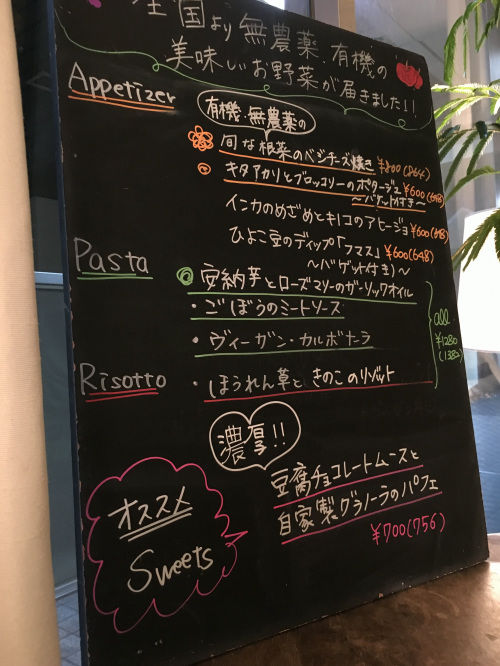 全国より無農薬、有機の
美味しいお野菜が届きました!!
Appetizer
有機・無農薬の
旬な根菜のベジチーズ焼き ¥800(864)
キタアカリとブロッコリーのポタージュ ¥600(648)
～バケット付き～
インカのめざめとキノコのアヒージョ ¥600(648)
ひよこ豆のディップ「フマス」 ¥600(648)
～バゲット付き)～
Pasta
安納芋とローズマリーのガーリックオイル
・ごぼうのミートソース
・ヴィーガン・カルボナーラ
all
¥1280
(1382)
Risotto
・ほうれん草ときのこのリゾット
濃厚!!
オススメ
Sweets
豆腐チョコレートムースと
自家製グラノーラのパフェ
¥700(756)